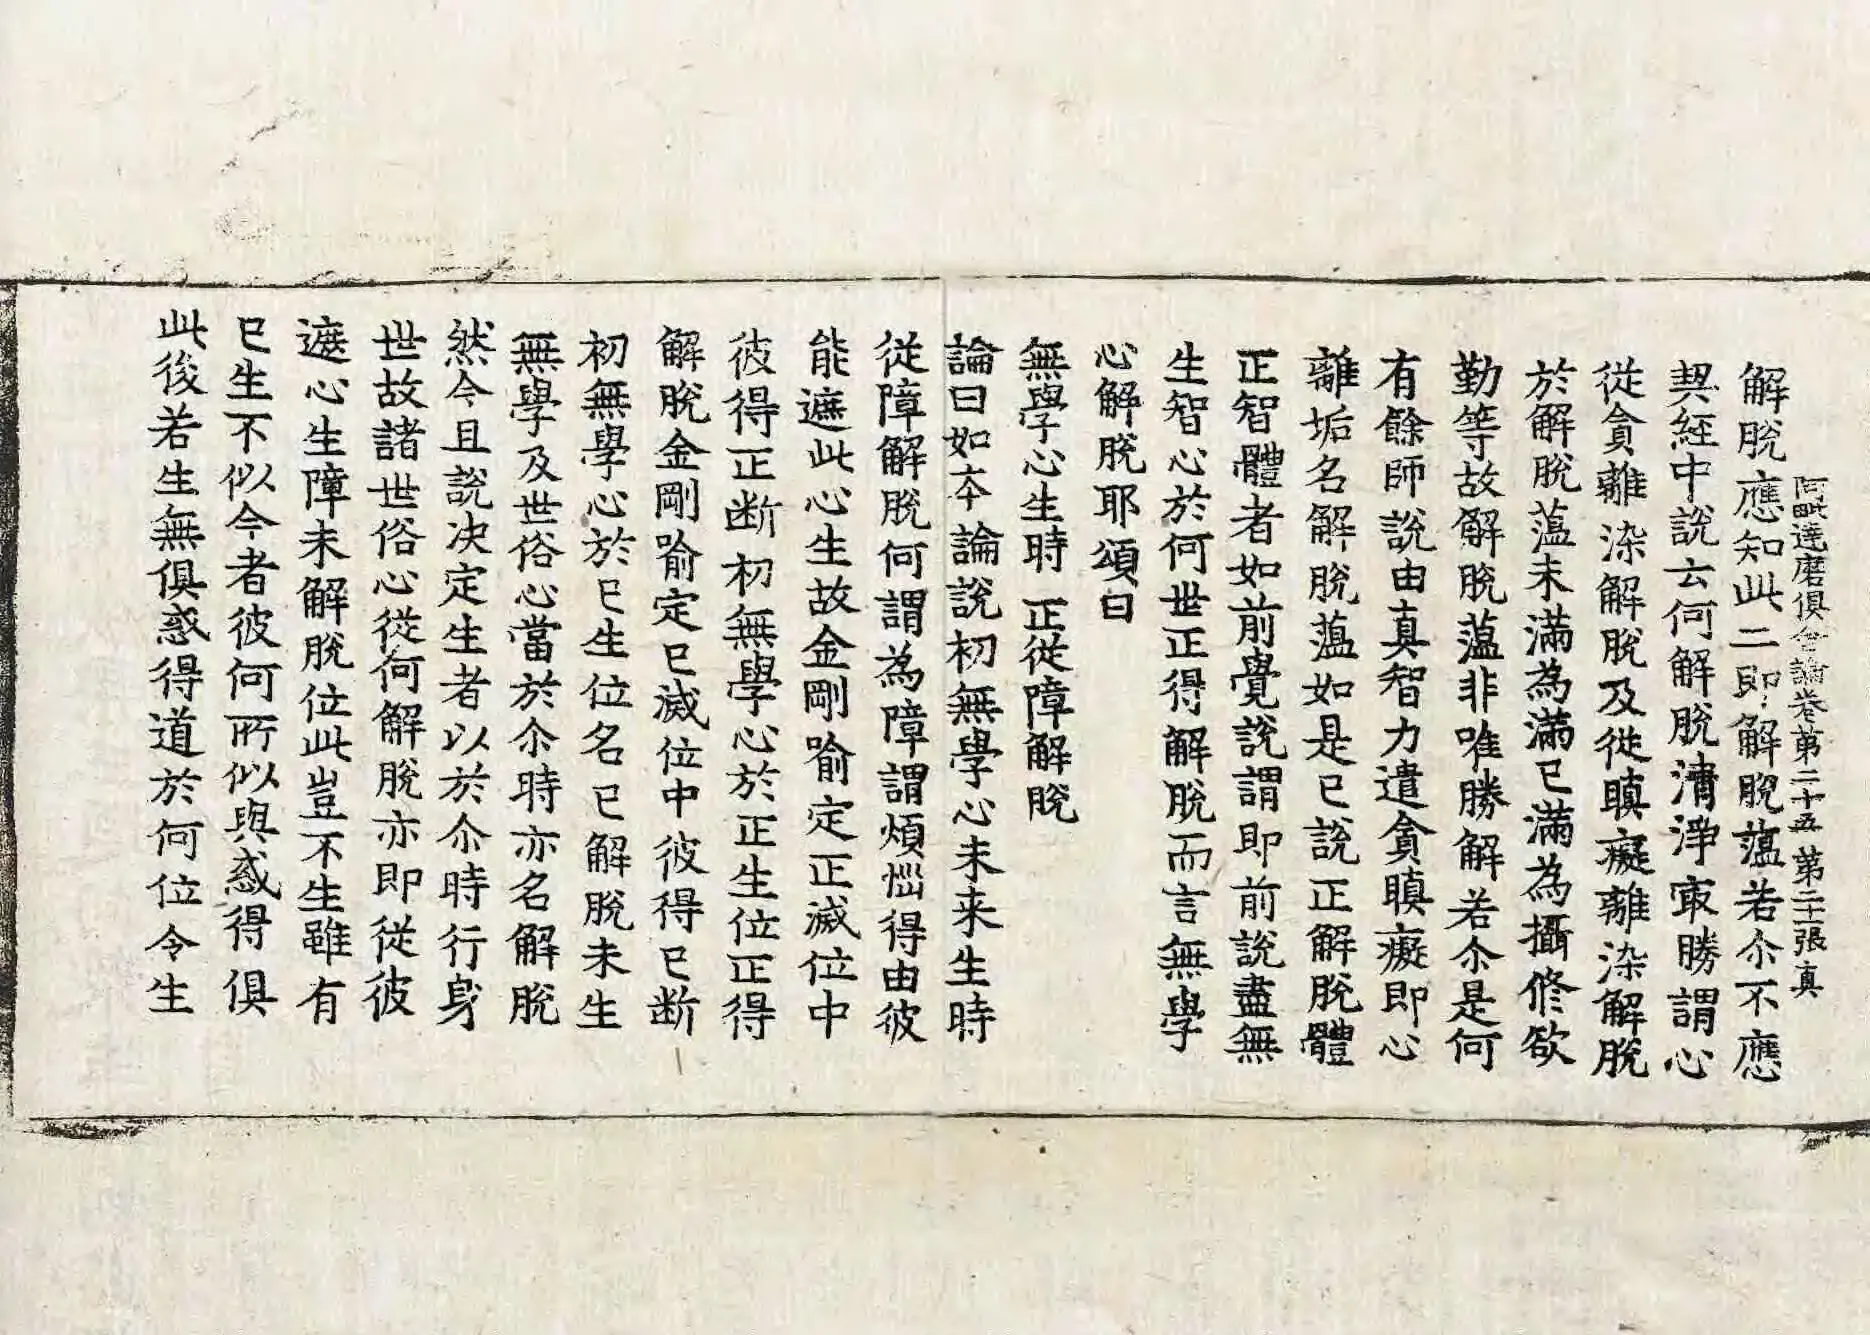 阿毗達磨俱舍論卷第二十五 第二十張 真
解脫應知此二即解脫蕰若尒不應
契經中說云何解脫清淨㝡勝謂心
從貪離染解脫及從瞋癡離染解脫
於解脫蕰未滿為滿已滿為攝修欲
勤等故解脫蕰非唯勝解若尒是何
有餘師說由真智力遣貪瞋癡即心
離垢名解脫蕰如是已說正解脫體
正智體者如前覺說謂即前說盡無
生智心於何世正得解脫而言無學
心解脫耶頌曰
無學心生時 正從障解脫
論曰如夲論說初無學心未来生時
從障解脫何謂為障謂煩惱得由彼
能遮此心生故金剛喻定正滅位中
彼得正断初無學心於正生位正得
解脫金剛喻定已滅位中彼得已断
初無學心於已生位名已解脫未生
無學及世俗心當於尒時亦名解脫
然今且說决定生者以於尒時行身
世故諸世俗心從何解脫亦即從彼
遮心生障未解脫位此豈不生雖有
已生不似今者彼何所似與惑得俱
此後若生無俱惑得道於何位令生